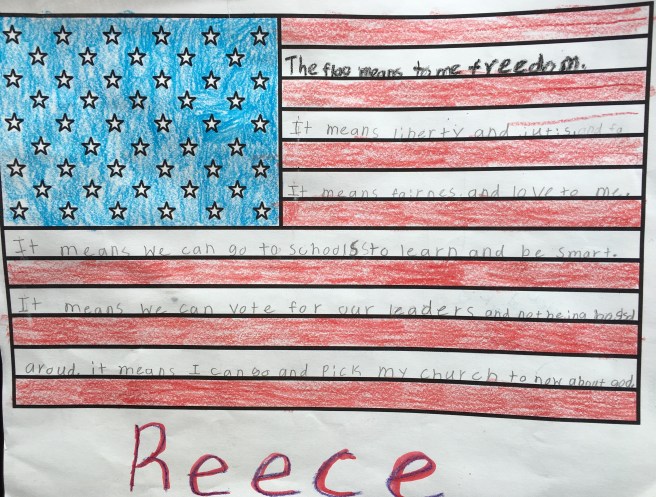 The flag means to me freedom.
It means liberty and
It means fairnes and love to me.
It means we can go to schools to learn and be smart.
It means we can vote for our leaders and not being
aroud. it means I can go and Pick my church to now about god.
Reece